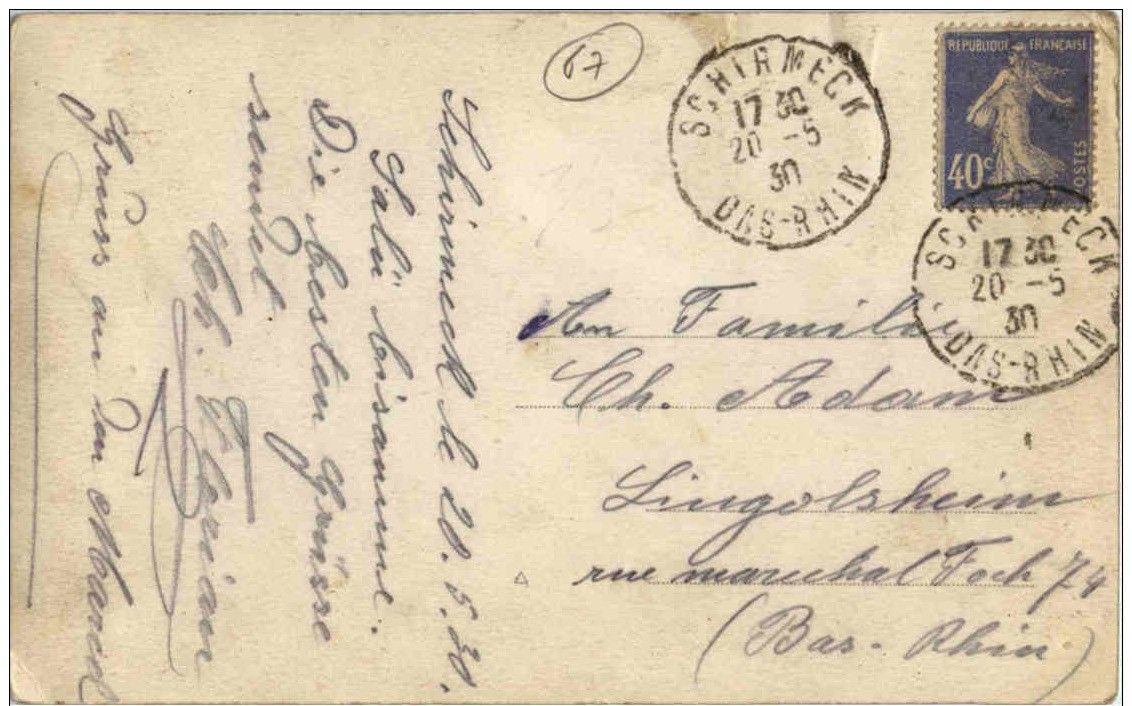 67
SCHIRMECK
17 30
20 -5
30
BAS-RHIN
REPUBLIQUE FRANÇAISE
40c
POSTES
SCHIRMECK
17 30
20 -5
30
BAS-RHIN
Schirmeck le 20.5.30.
Salü bisamme.
Die besten Grüsse
sendet
Florian
Grüss an den Marcel
An Famili
Ch. Adam
Lingolsheim
rue marechal Foch 74
(Bas-Rhin)